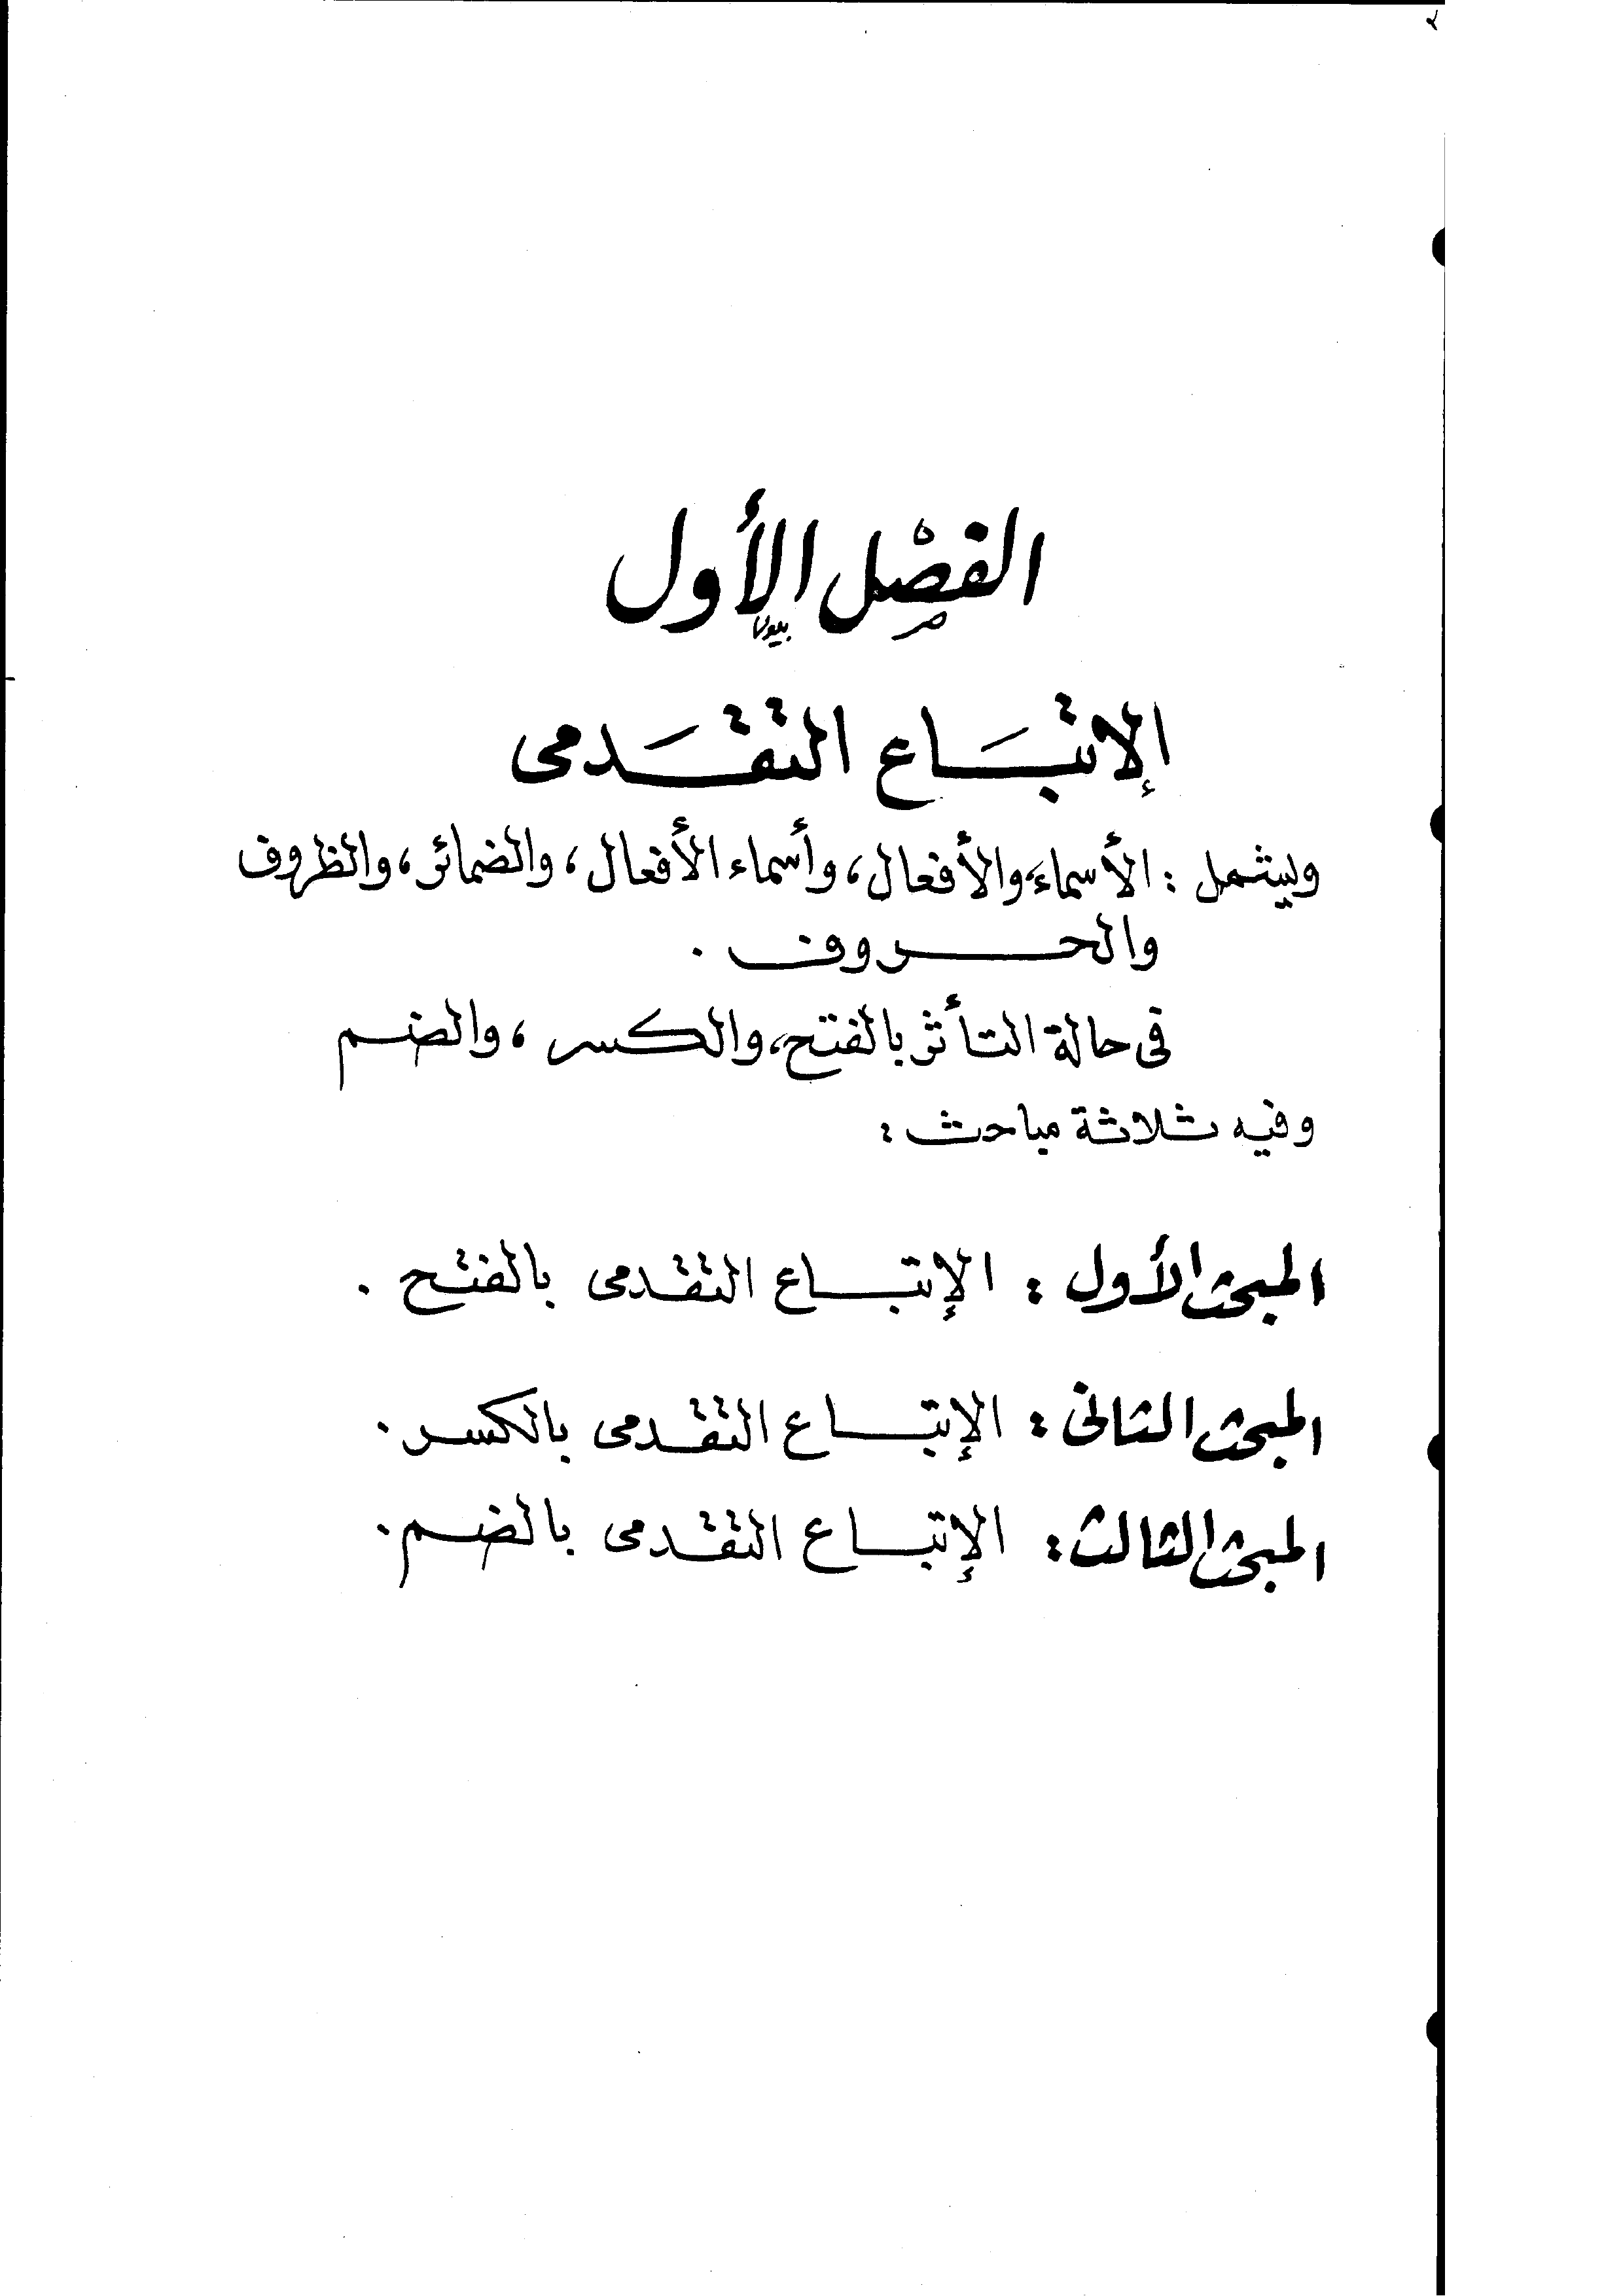 الفصْل الأول
الإتبَاع التقَدمى
ويشمل : الأسماء، والأفعال، وأسماء الأفعال، والضمائر، والظروف
والحروف .
فى حالة التأثر بالفتح، والكسر، والضم
وفيه ثلاثة مباحث :
المبحث الأول : الإتباع التقدمى بالفتح .
المبحث الثانى : الإتباع التقدمى بالكسر .
المبحث الثالث : الإتباع التقدمى بالضم .